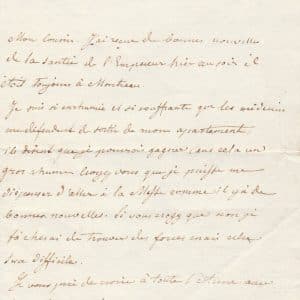 Mon cousin. J'ai reçue de bonnes nouvelle
de la santée de l'Empereur hier au soir il
étoit toujours à Montreau
Je suis si enrhumée et si souffrante que les médecins
me défendent de sortir de mon appartement,
ils disent que je pourois gagner sans cela un
gros rhume croyez vous que je puisse me
dispenser d'aller à la Messe comme il y a de
bonnes nouvelles. Si vous croyez que non je
tâcherai de trouver des forces mais cela
sera difficile.
Je vous prie de croire à toute l'estime avec